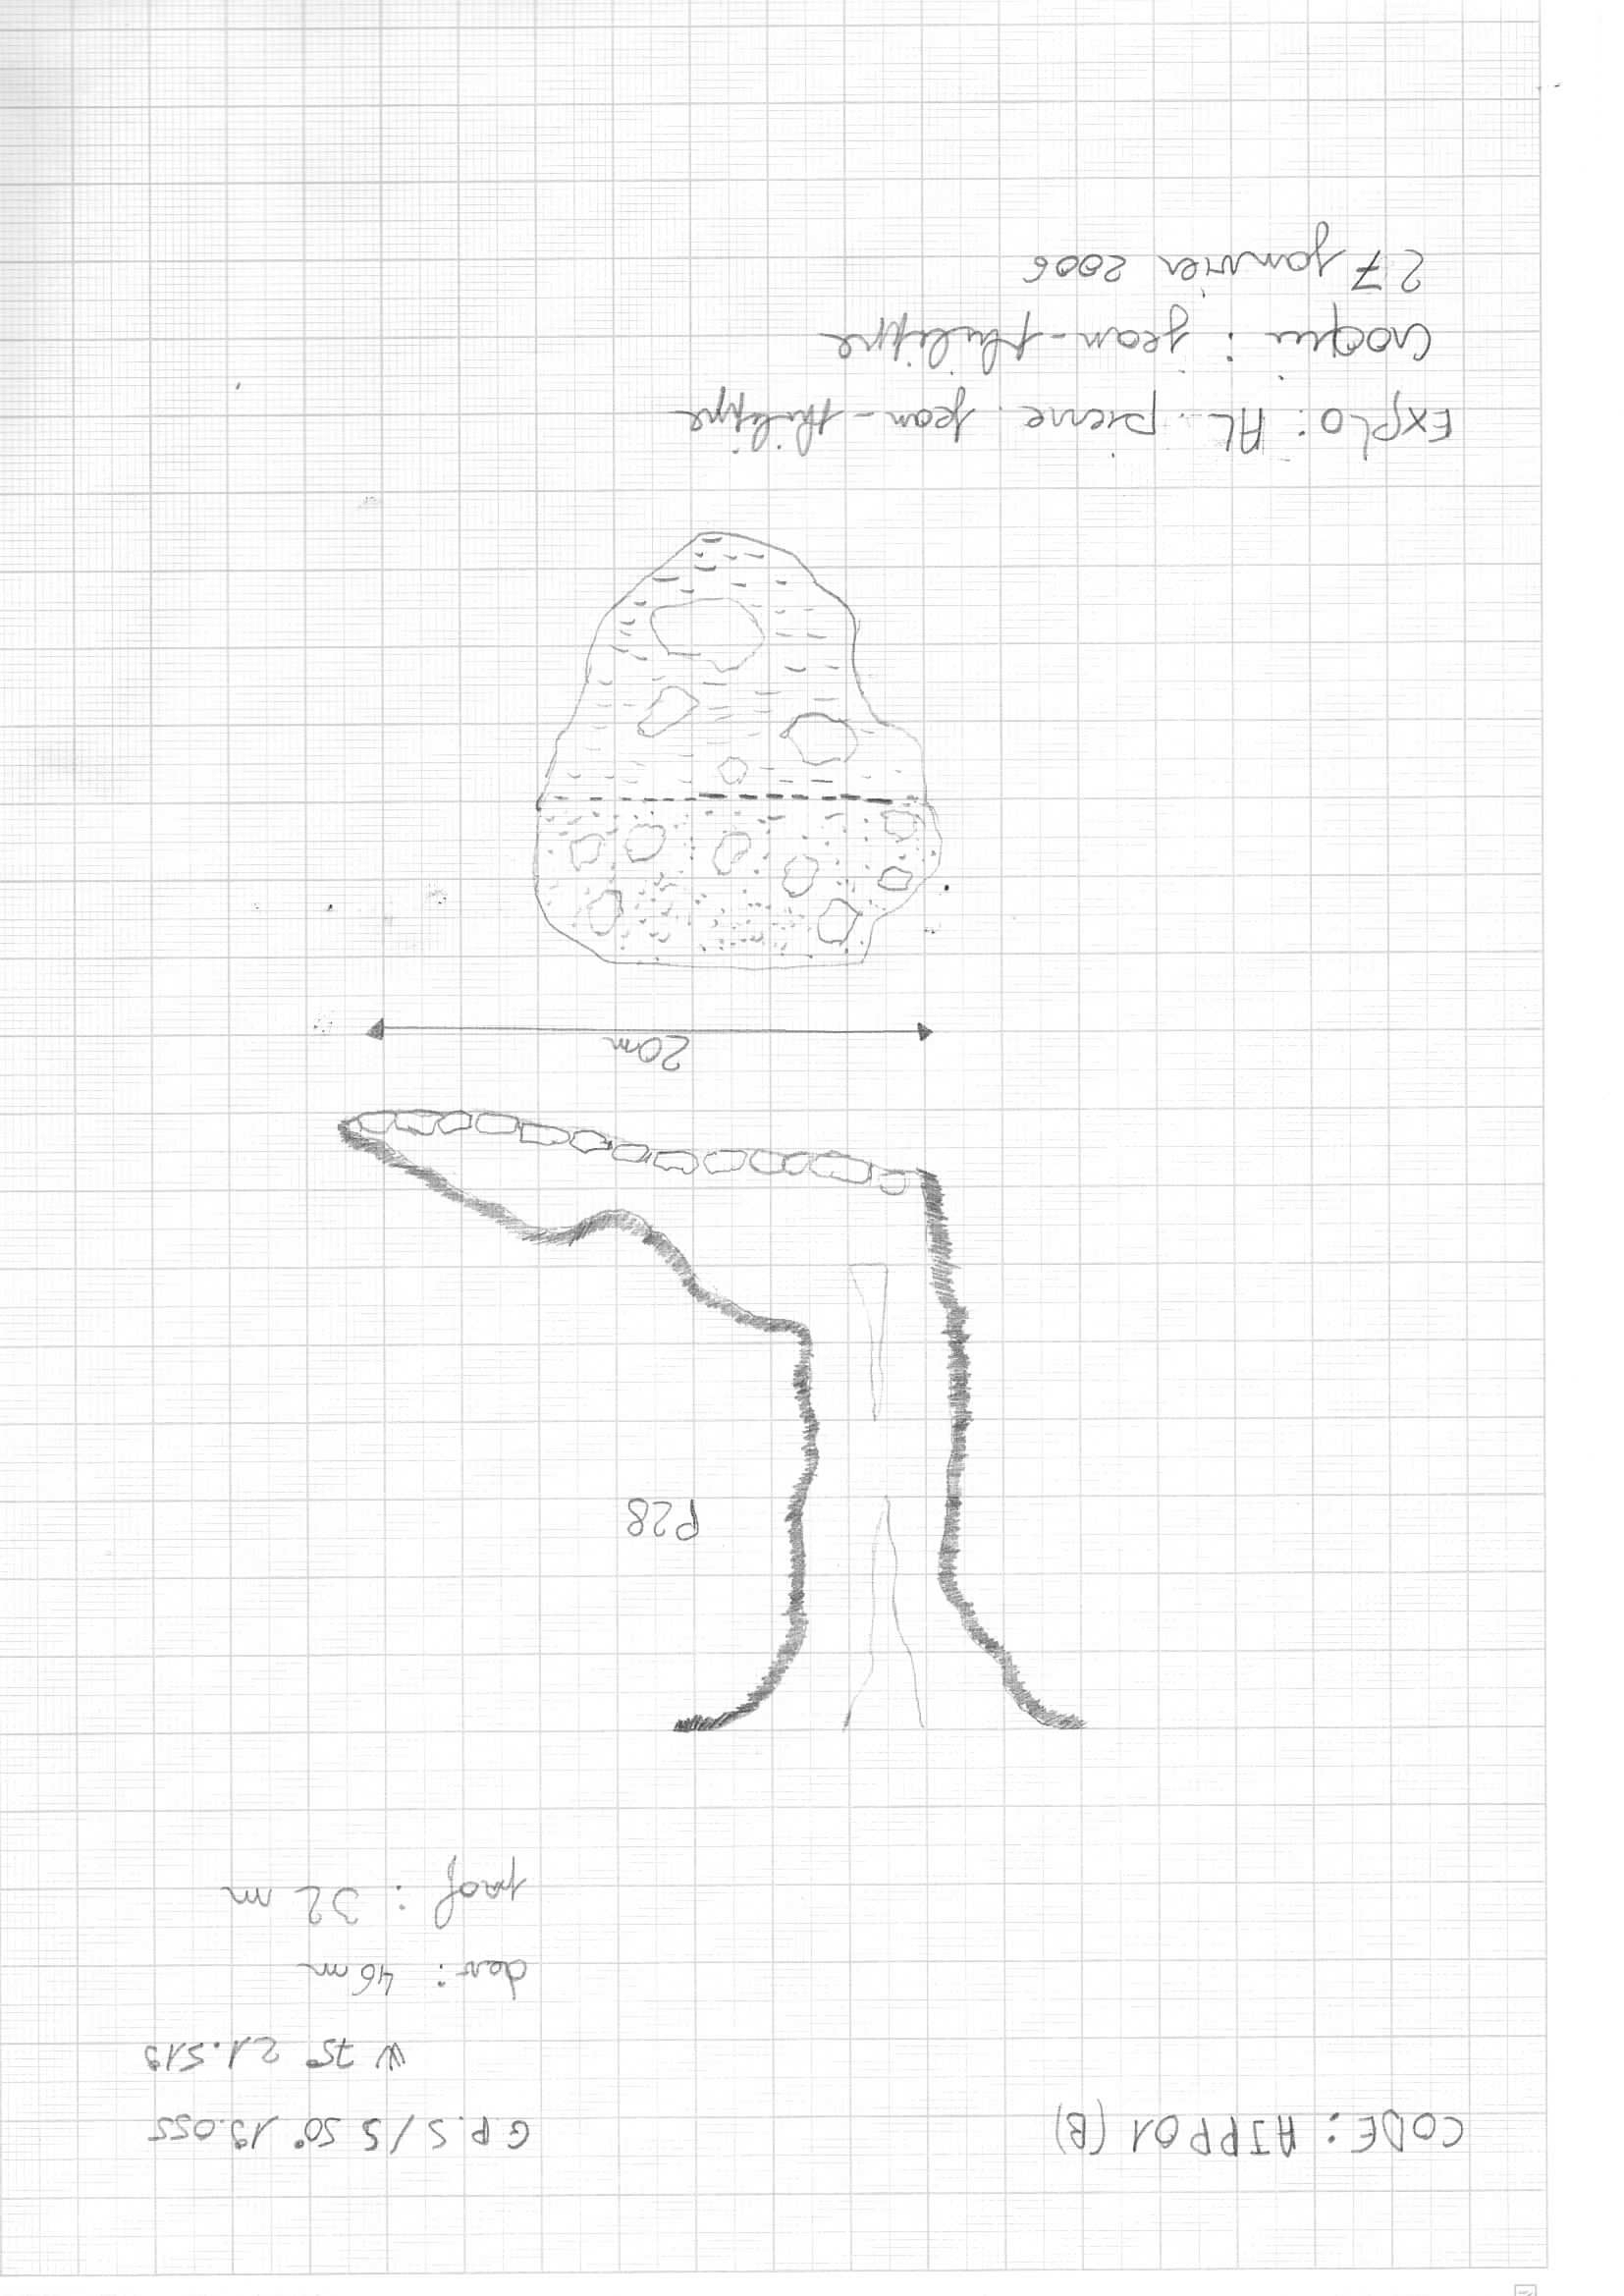 CODE : AJPP01 (B)
G.P.S / S 50° 19.055
W 75° 21.519
dev : 46m
prof : 32 m
P28
20m
EXPLO : AL. pierre. jean-philippe
croquis : jean-philippe
27 janvier 2006